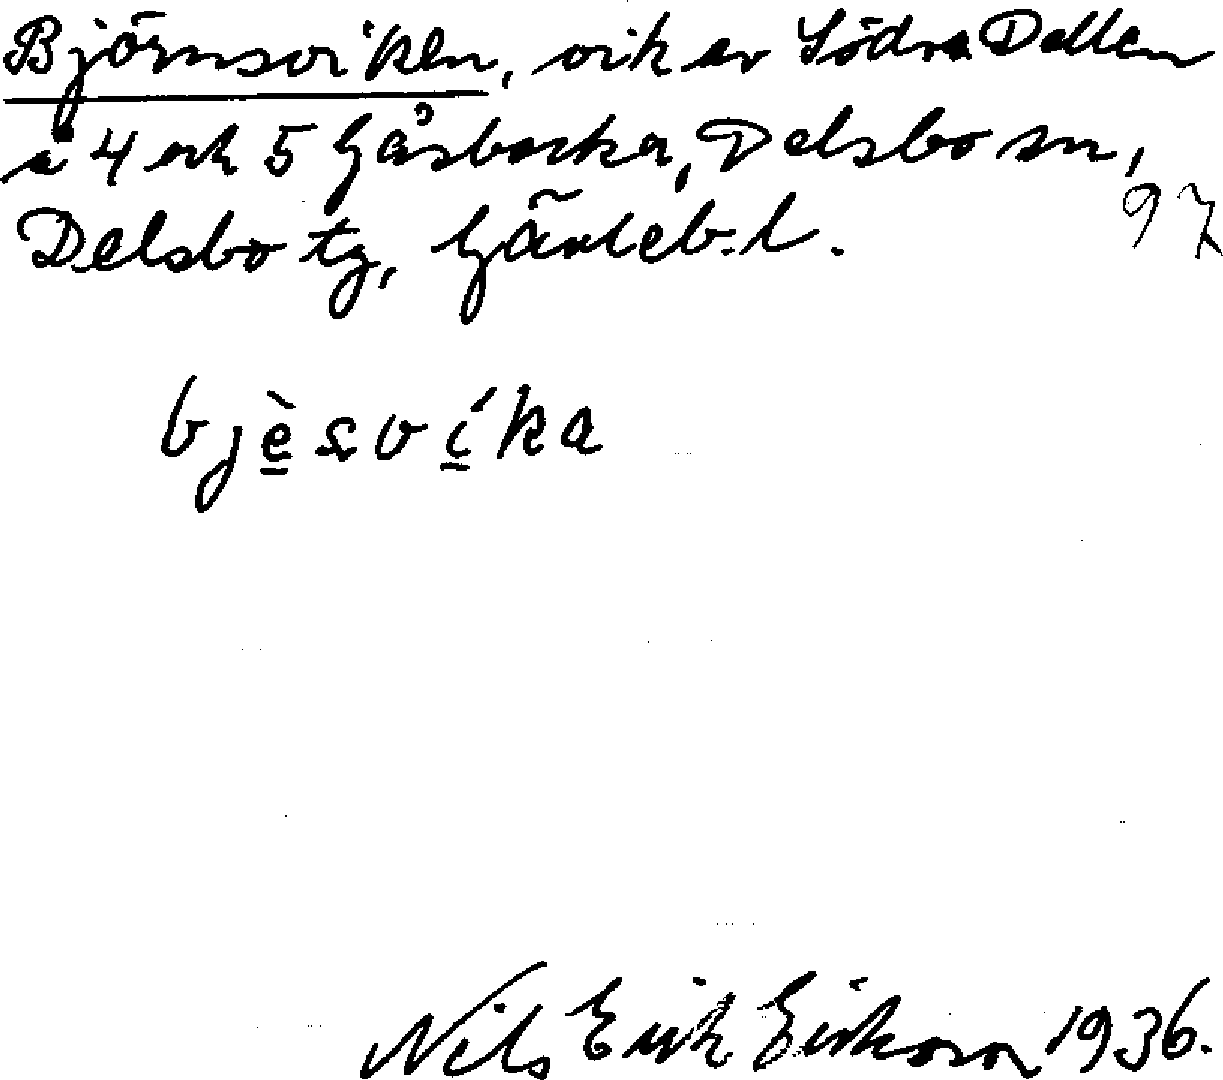 Björnsviken, vik av Södra Dellen
å 4 och 5 Gåsbacka, Delsbo sn,
97
Delsbo tg, Gävleb. l.
bjèsvíka
Nils Erik Eriksson 1936.